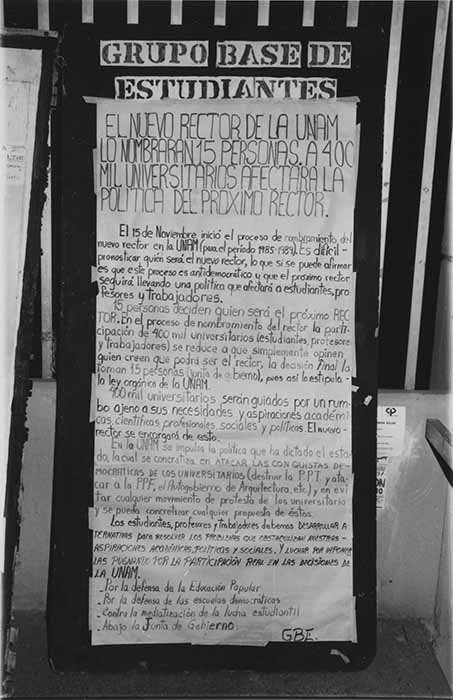 GRUPO BASE DE
ESTUDIANTES
EL NUEVO RECTOR DE LA UNAM
LO NOMBRARAN 15 PERSONAS. A 400
MIL UNIVERSITARIOS AFECTARA LA
POLITICA DEL PROXIMO RECTOR.
El 15 de Noviembre inició el proceso de nombramiento del
nuevo rector en la UNAM (para el período 1985-1989). Es difícil-
pronosticar quién será el nuevo rector, lo que si se puede afirmar
es que este proceso es antidemocrático y que el próximo rector
seguirá llevando una política que afectará a estudiantes, pro
fesores y trabajadores.
15 personas deciden quien será el próximo REC
TOR. En el proceso de nombramiento del rector la parti-
cipación de 400 mil universitarios (estudiantes, profesores
y trabajadores) se reduce a que simplemente opinen
quien creen que podrá ser el rector, la decisión final la
toman 15 personas (junta de gobierno), pues así lo estipula-
la ley orgánica de la UNAM.
400 mil universitarios serán guiados por un rum
bo ajeno a sus necesidades y aspiraciones académi
cas, científicas, profesionales, sociales y políticas. El nuevo-
rector se encargará de esto.
En la UNAM se impulsa la política que ha dictado el esta
do, la cual se concretiza en ATACAR LAS CONQUISTAS DE-
MOCRATICAS DE LOS UNIVERSITARIOS (destruir la P.P.T. y ata-
car a la PPF, el Autogobierno de Arquitectura, etc.) y en evi
tar cualquier movimiento de protesta de los universitario
y se pueda concretizar cualquier propuesta de éstos.
Los estudiantes, profesores y trabajadores debemos DESARROLLAR A
TERNATIVAS PARA RESOLVER LOS PROBLEMAS QUE OBSTACULIZAN NUESTRAS-
ASPIRACIONES ACADÉMICAS, POLITICAS Y SOCIALES. Y LUCHAR POR IMPONER
LAS PUGNANDO POR LA PARTICIPACIÓN REAL EN LAS DECISIONES DE
LA UNAM.
- Por la defensa de la Educación Popular
- Por la defensa de las escuelas democraticas
- Contra la mediatización de la lucha estudiantil
- Abajo la Junta de Gobierno.
GBE.